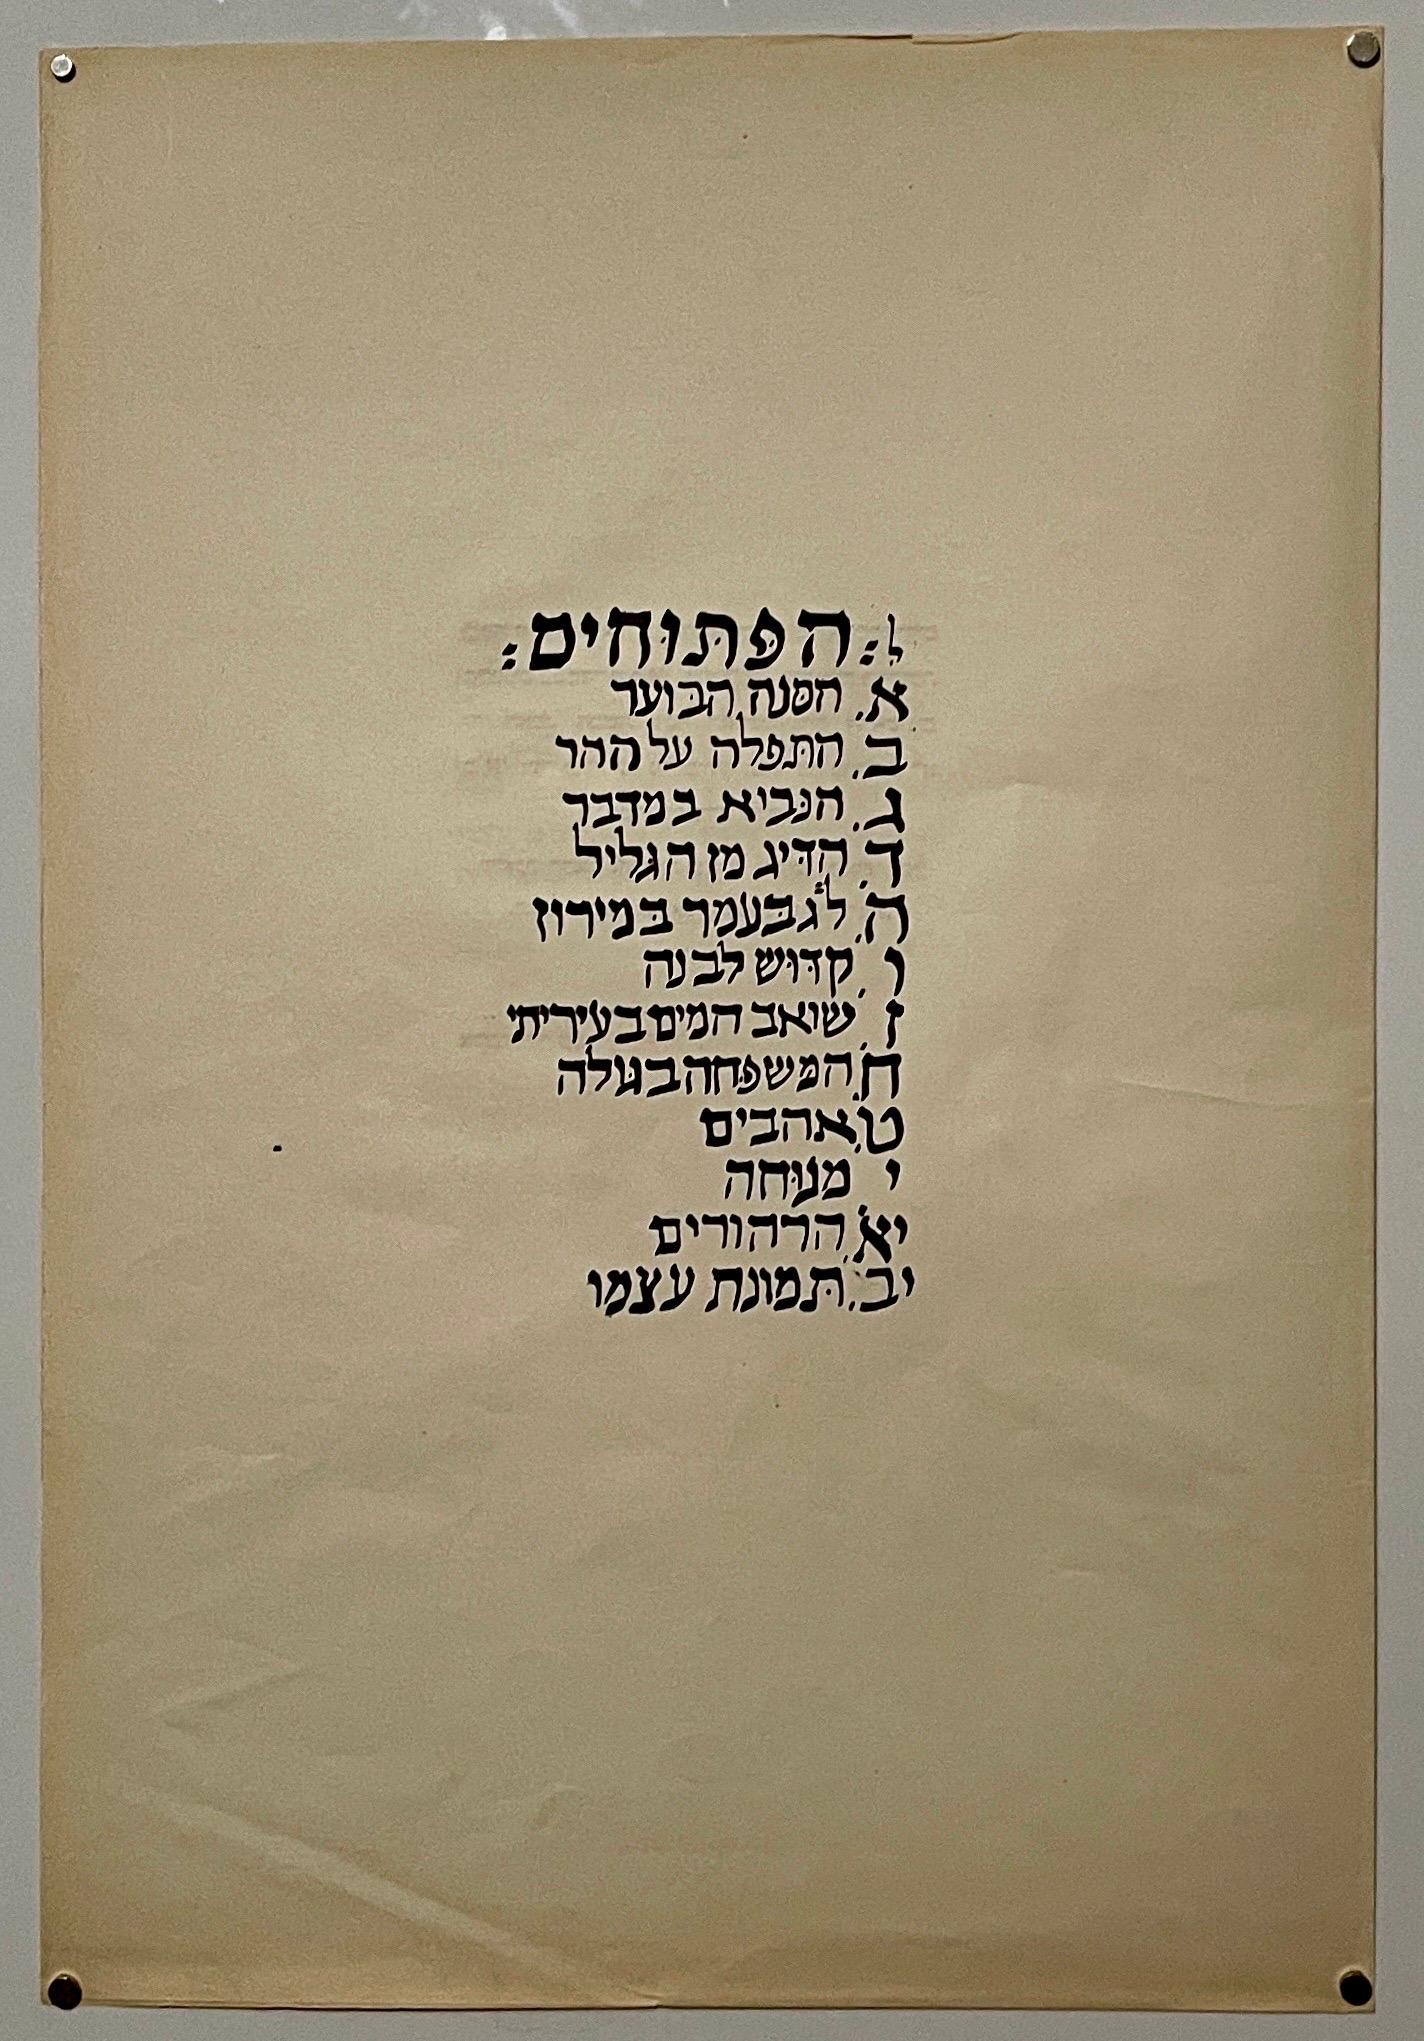 : הפתוחים :
א. הסנה הבוער
ב. התפלה על ההר
ג. הנביא במדבר
ד. הדיג מן הגליל
ה. ל״ג בעמר במירון
ו. קדוש לבנה
ז. שואב המים בעיריתי
ח. המשפחה בגולה
ט. אהבים
י מנוחה
יא. הרהורים
יב. תמונת עצמו